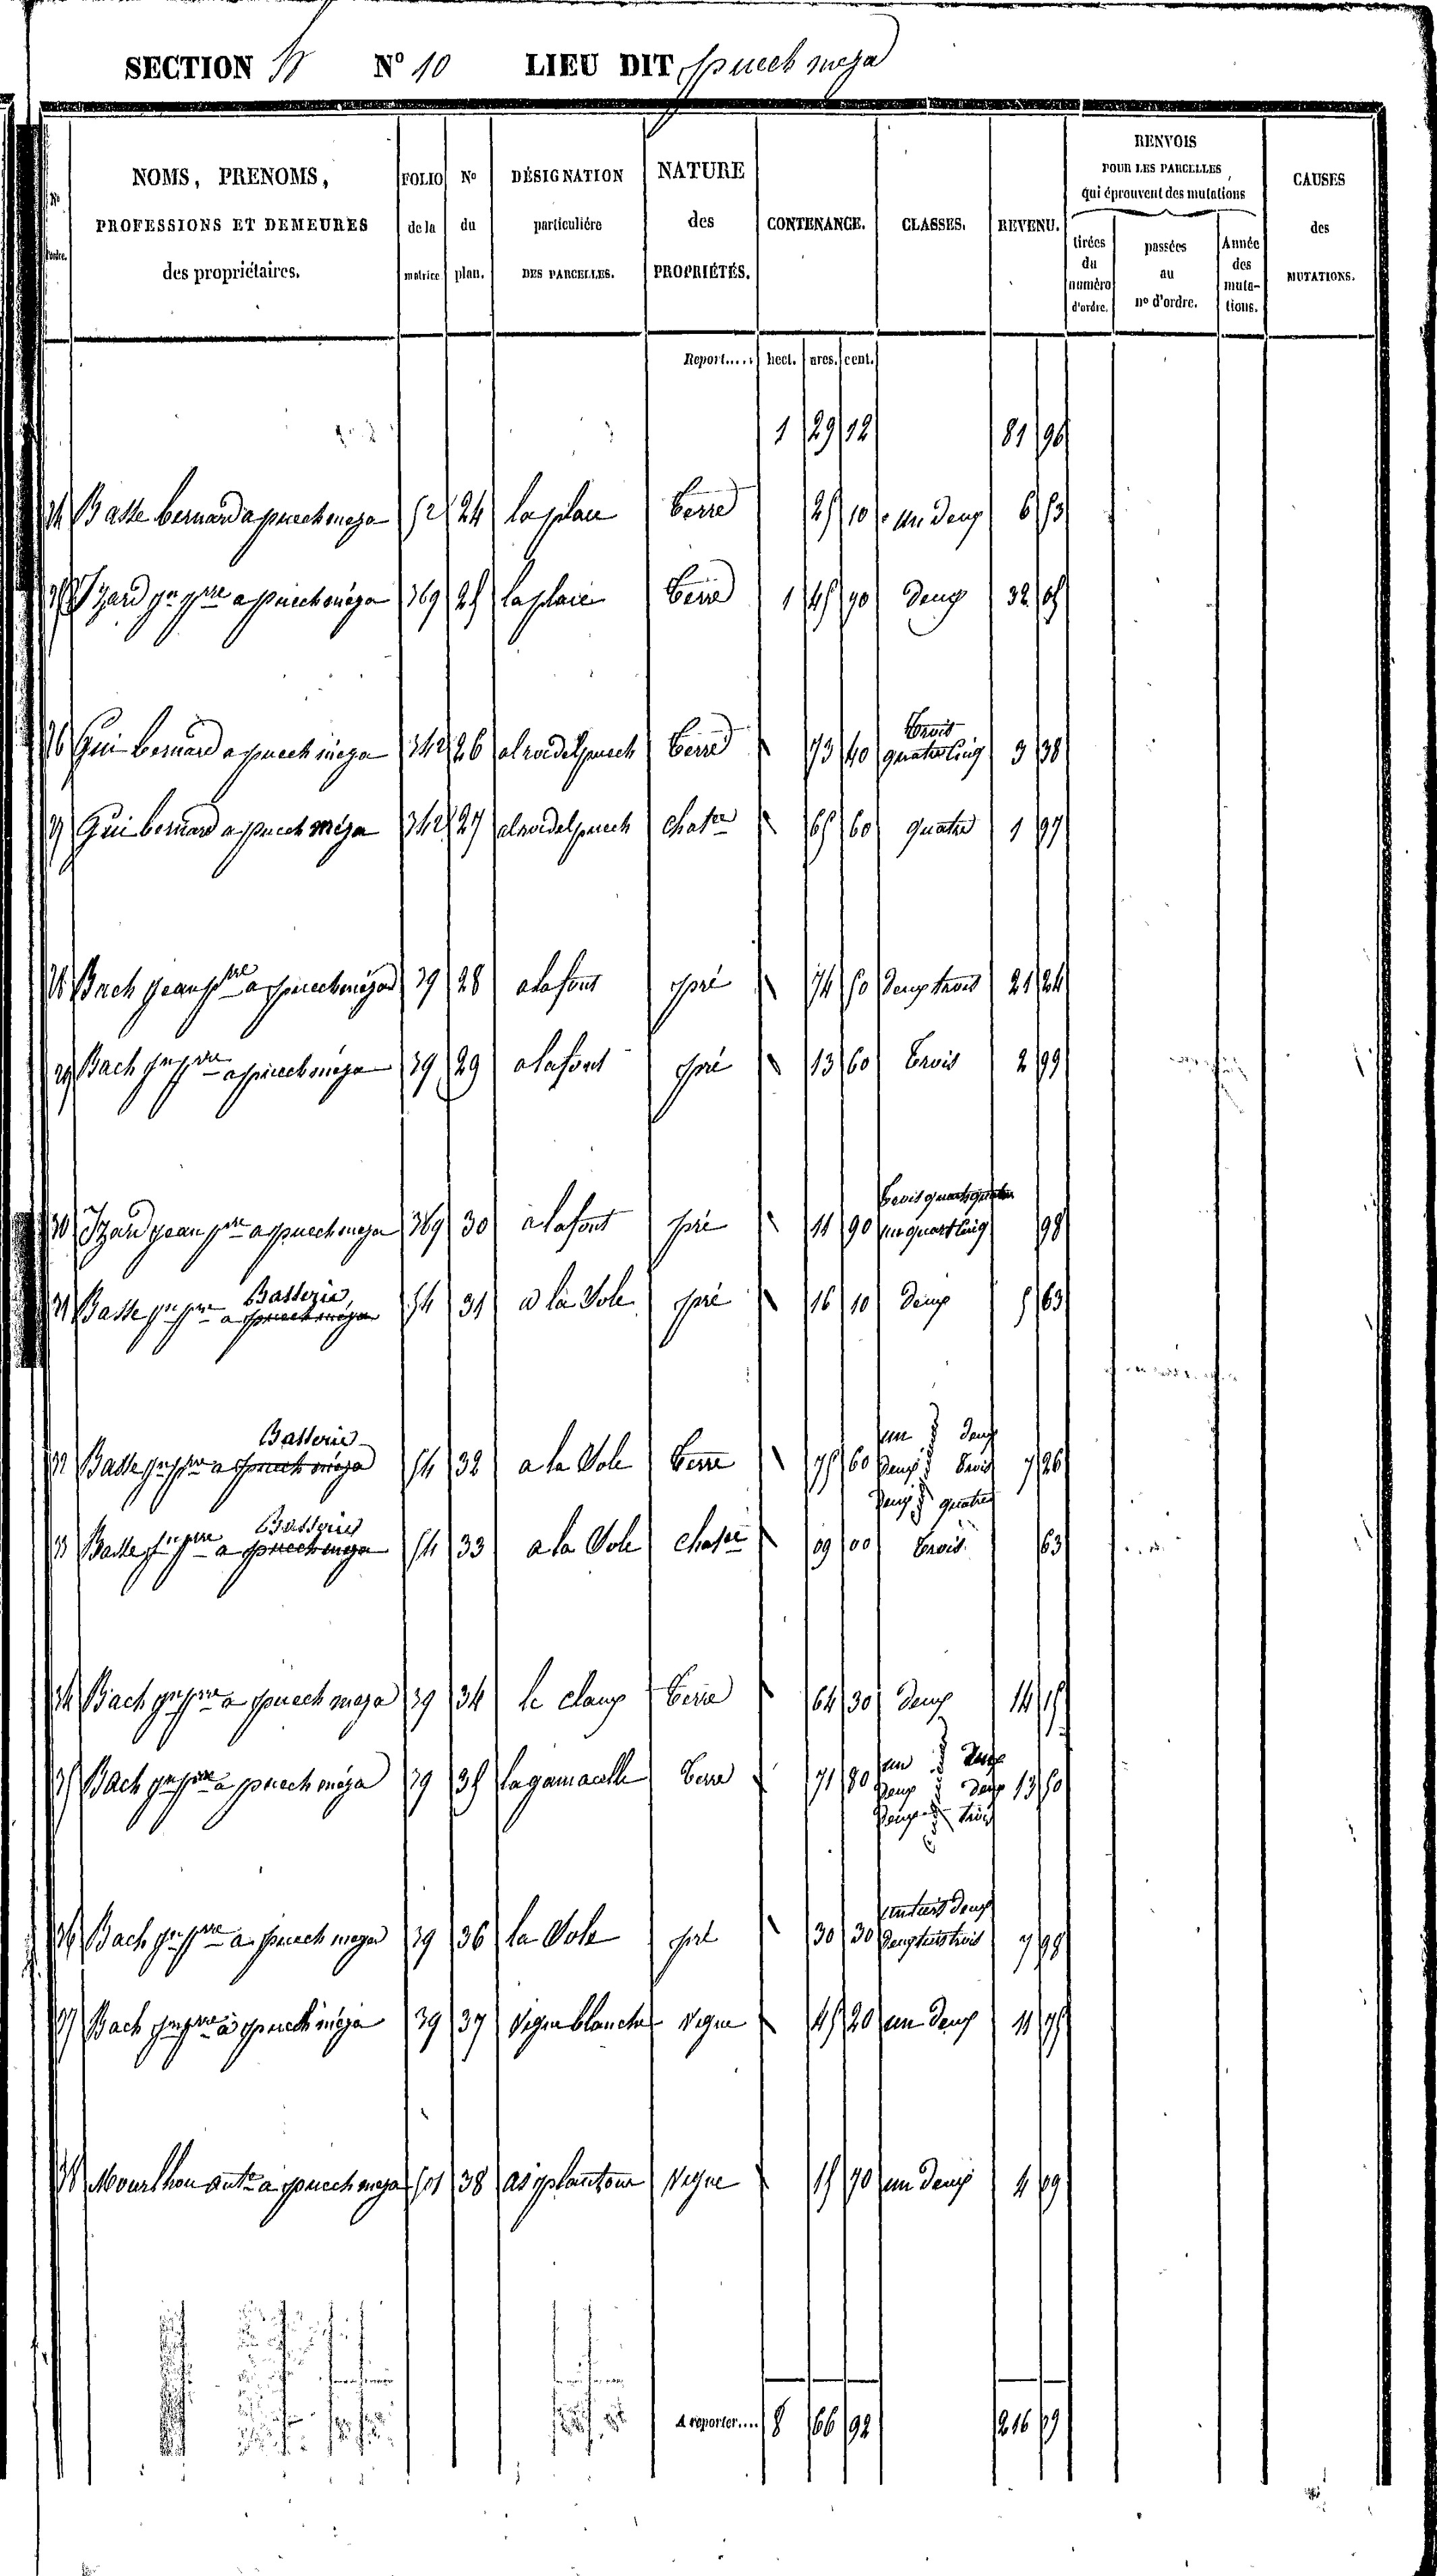 SECTION N° 10 LIEU DIT puech meja
N° d'ordre.
NOMS, PRENOMS, PROFESSIONS ET DEMEURES des propriétaires.
FOLIO de la matrice
N° du plan.
DÉSIGNATION particulière DES PARCELLES.
NATURE des PROPRIÉTÉS.
CONTENANCE.
CLASSES.
REVENU.
RENVOIS POUR LES PARCELLES qui éprouvent des mutations
tirées du numéro d'ordre.
passées au n° d'ordre.
Année des mutations.
CAUSES des MUTATIONS.
Report..... hect. ares. cent.
1 29 12 81 96
24 Basse bernard a puech meja 52 24 la place terre 25 10 un deux 6 53
25 Izard jn pre a puech méja 369 25 la place terre 1 45 70 deux 32 05
trois
26 Gui bernard a puech méja 342 26 al roc del puech terre 73 40 quatre cinq 3 38
27 Gui bernard a puech méja 342 27 al roc del puech chatre 65 60 quatre 1 97
28 Bach jean pre a puech méja 39 28 a la font pré 74 50 deux trois 21 24
29 Bach jn pre a puech méja 39 29 a la font pré 13 60 trois 2 99
trois quarts quatre
30 Izard jean pre a puech meja 369 30 a la font pré 11 90 un quart cinq 98
Basserie
31 Basse jn pre a puech méja 54 31 a la Sole pré 16 10 deux 5 63
Basserie un deux
32 Basse jn pre a puech meja 54 32 a la Sole terre 75 60 deux trois 7 26
deux quatre
Basserie
33 Basse jn pre a puech meja 54 33 a la Sole chatre 09 00 trois 63
34 Bach jn pre a puech meja 39 34 le claux terre 64 30 deux 14 15
un deux
35 Bach jn pre a puech méja 39 35 terre 71 80 deux deux 13 50
deux trois
un tiers deux
36 Bach jn pre a puech meja 39 36 la Sole pré 30 30 deux tiers trois 7 98
37 Bach jn pre a puech méja 39 37 vigne blanche vigne 45 20 un deux 11 75
38 Mourlhon ante a puech meja 501 38 as plantous vigne 15 70 un deux 4 09
A reporter.... 8 66 92 216 09